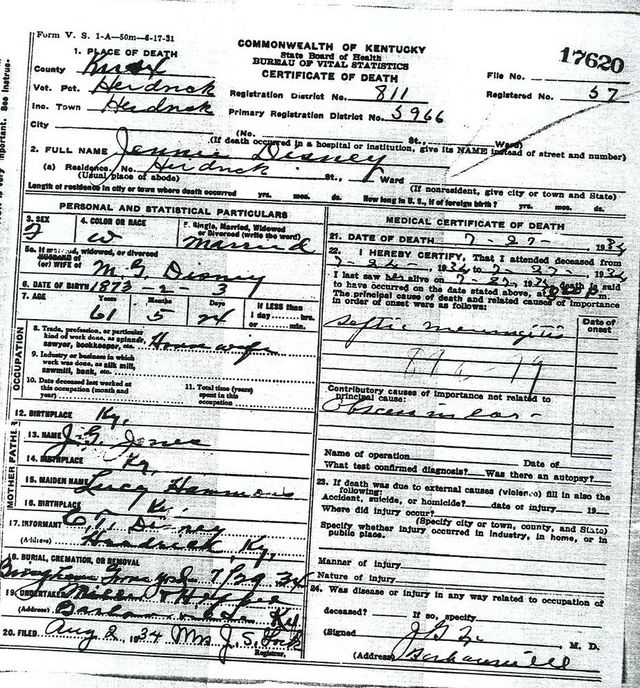 Form V. S. 1-A—50m—6-17-31
COMMONWEALTH OF KENTUCKY
State Board of Health
BUREAU OF VITAL STATISTICS
CERTIFICATE OF DEATH
17620
File No.
Registered No. 57
1. PLACE OF DEATH
County Knox
Vot. Pct. Herdrick
Inc. Town Herdrick
City
Registration District No. 811
Primary Registration District No. 5966
(No. St., Ward)
(If death occurred in a hospital or institution, give its NAME instead of street and number)
2. FULL NAME Jennie Disney
(a) Residence. No. Herdrick St., Ward
(Usual place of abode) (If nonresident, give city or town and State)
Length of residence in city or town where death occurred yrs. mos. ds. How long in U. S., if of foreign birth? yrs. mos. ds.
PERSONAL AND STATISTICAL PARTICULARS
3. SEX F
4. COLOR OR RACE W
5. Single, Married, Widowed or Divorced (write the word) Married
5a. If married, widowed, or divorced
HUSBAND of
(or) WIFE of M. G. Disney
6. DATE OF BIRTH 1873-2-3
7. AGE Years 61 Months 5 Days 24 If LESS than 1 day hrs. or min.
OCCUPATION
8. Trade, profession, or particular
kind of work done, as spinner,
sawyer, bookkeeper, etc. House wife
9. Industry or business in which
work was done, as silk mill,
sawmill, bank, etc.
10. Date deceased last worked at
this occupation (month and
year)
11. Total time (years)
spent in this
occupation
12. BIRTHPLACE Ky.
FATHER
13. NAME J. G. Jones
14. BIRTHPLACE Ky.
MOTHER
15. MAIDEN NAME Lucy Hammons
16. BIRTHPLACE Ky.
17. INFORMANT C. T. Disney
(Address) Ky.
18. BURIAL, CREMATION, OR REMOVAL
7/29 34
19. UNDERTAKER
(Address) Ky
20. FILED Aug 2 1934 Mrs J. S.
Registrar.
MEDICAL CERTIFICATE OF DEATH
21. DATE OF DEATH 7-27- 1934
22. I HEREBY CERTIFY, That I attended deceased from
1934 to 7-27- 1934
I last saw her alive on 1934 death is said
to have occurred on the date stated above, at m.
The principal cause of death and related causes of importance
in order of onset were as follows:
Date of onset
Septic meningitis
Contributory causes of importance not related to
principal cause:
Abscess in ear -
Name of operation Date of
What test confirmed diagnosis? Was there an autopsy?
23. If death was due to external causes (violence) fill in also the
following:
Accident, suicide, or homicide? date of injury 19
Where did injury occur?
(Specify city or town, county, and State)
Specify whether injury occurred in industry, in home, or in
public place.
Manner of injury
Nature of injury
24. Was disease or injury in any way related to occupation of
deceased? If so, specify
(Signed M. D.
(Address)